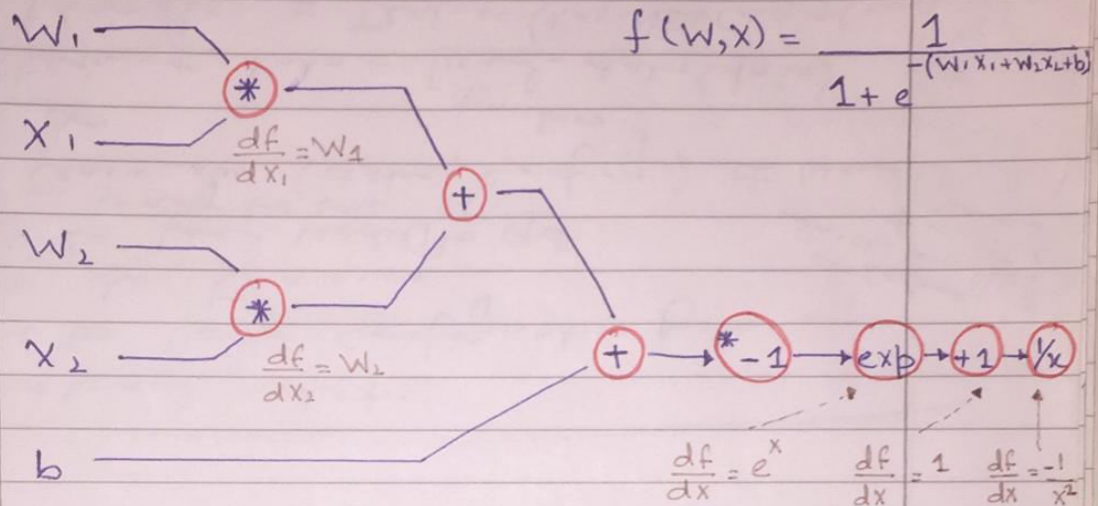 W₁
f(W,x) = 1 / 1 + e^-(W₁X₁+W₂X₂+b)
*
X₁
df/dx₁ = W1
+
W₂
*
X₂
df/dx₂ = W₂
+ *-1 exp +1 1/x
b
df/dx = e^x df/dx = 1 df/dx = -1/x²